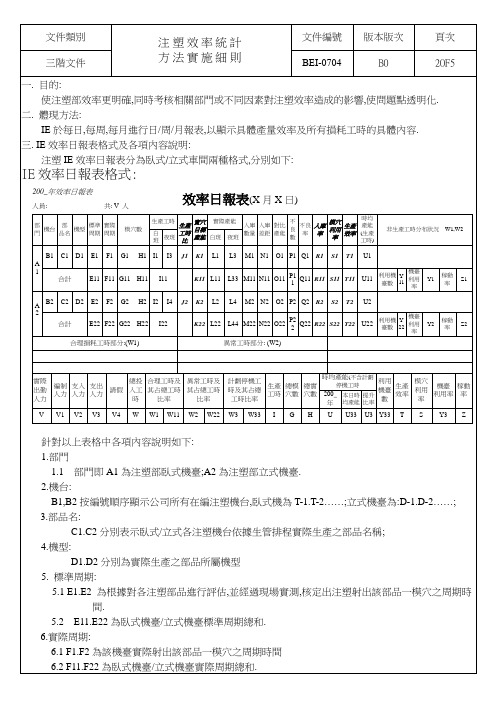 文件類別 注塑效率統計 文件編號 版本版次 頁次
三階文件 方法實施細則 BEI-0704 B0 20F5
一. 目的:
使注塑部效率更明確,同時考核相關部門或不同因素對注塑效率造成的影響,使問題點透明化.
二. 體現方法:
IE於每日,每周,每月進行日/周/月報表,以顯示具體產量效率及所有損耗工時的具體內容.
三. IE效率日報表格式及各項內容說明:
注塑IE效率日報表分為臥式/立式車間兩種格式,分別如下:
IE效率日報表格式:
200_年效率日報表
效率日報表(X月X日)
人員: 共: V 人
部門 機台 部品名 機型 標準周期 實際周期 模穴數 生產工時 生產工時比 實穴目標產能 實際產能 入庫數量 入庫差距 對比產能 不良數 不良率 入庫率 模穴利用率 生產效率 時均產能(生產工時) 非生產工時分析狀況 W1.W2
日班 夜班 日班 夜班
A1 B1 C1 D1 E1 F1 G1 H1 I1 I3 J1 K1 L1 L3 M1 N1 O1 P1 Q1 R1 S1 T1 U1
合計 E11 F11 G11 H11 I11 K11 L11 L33 M11 N11 O11 P11 Q11 R11 S11 T11 U11 利用機臺數 Y11 機臺利用率 Y1 稼動率 Z1
A2 B2 C2 D2 E2 F2 G2 H2 I2 I4 J2 K2 L2 L4 M2 N2 O2 P2 Q2 R2 S2 T2 U2
合計 E22 F22 G22 H22 I22 K22 L22 L44 M22 N22 O22 P22 Q22 R22 S22 T22 U22 利用機臺數 Y22 機臺利用率 Y2 稼動率 Z2
合理損耗工時部分:(W1) 異常工時部分: (W2)
實際出勤人力 編制人力 支入人力 支出人力 請假 總投入工時 合理工時及其占總工時比率 異常工時及其占總工時比率 計劃停機工時及其占總工時比率 生產工時 總模穴數 總實穴數 時均產能(不含計劃停機工時 利用機臺數 生產效率 模穴利用率 機臺利用率 稼動率
200_年 本日時均產能 提升比率
V V1 V2 V3 V4 W W1 W11 W2 W22 W3 W33 I G H U U33 U3 Y33 T S Y3 Z
針對以上表格中各項內容說明如下:
1.部門
1.1 部門即A1為注塑部臥式機臺;A2為注塑部立式機臺.
2.機台:
B1,B2按編號順序顯示公司所有在編注塑機台,臥式機為T-1.T-2……;立式機臺為:D-1.D-2……;
3.部品名:
C1.C2分別表示臥式/立式各注塑機台依據生管排程實際生產之部品名稱;
4.機型:
D1.D2分別為實際生產之部品所屬機型
5. 標準周期:
5.1 E1.E2 為根據對各注塑部品進行評估,並經過現場實測,核定出注塑射出該部品一模穴之周期時
間.
5.2 E11.E22為臥式機臺/立式機臺標準周期總和.
6.實際周期:
6.1 F1.F2為該機臺實際射出該部品一模穴之周期時間
6.2 F11.F22為臥式機臺/立式機臺實際周期總和.